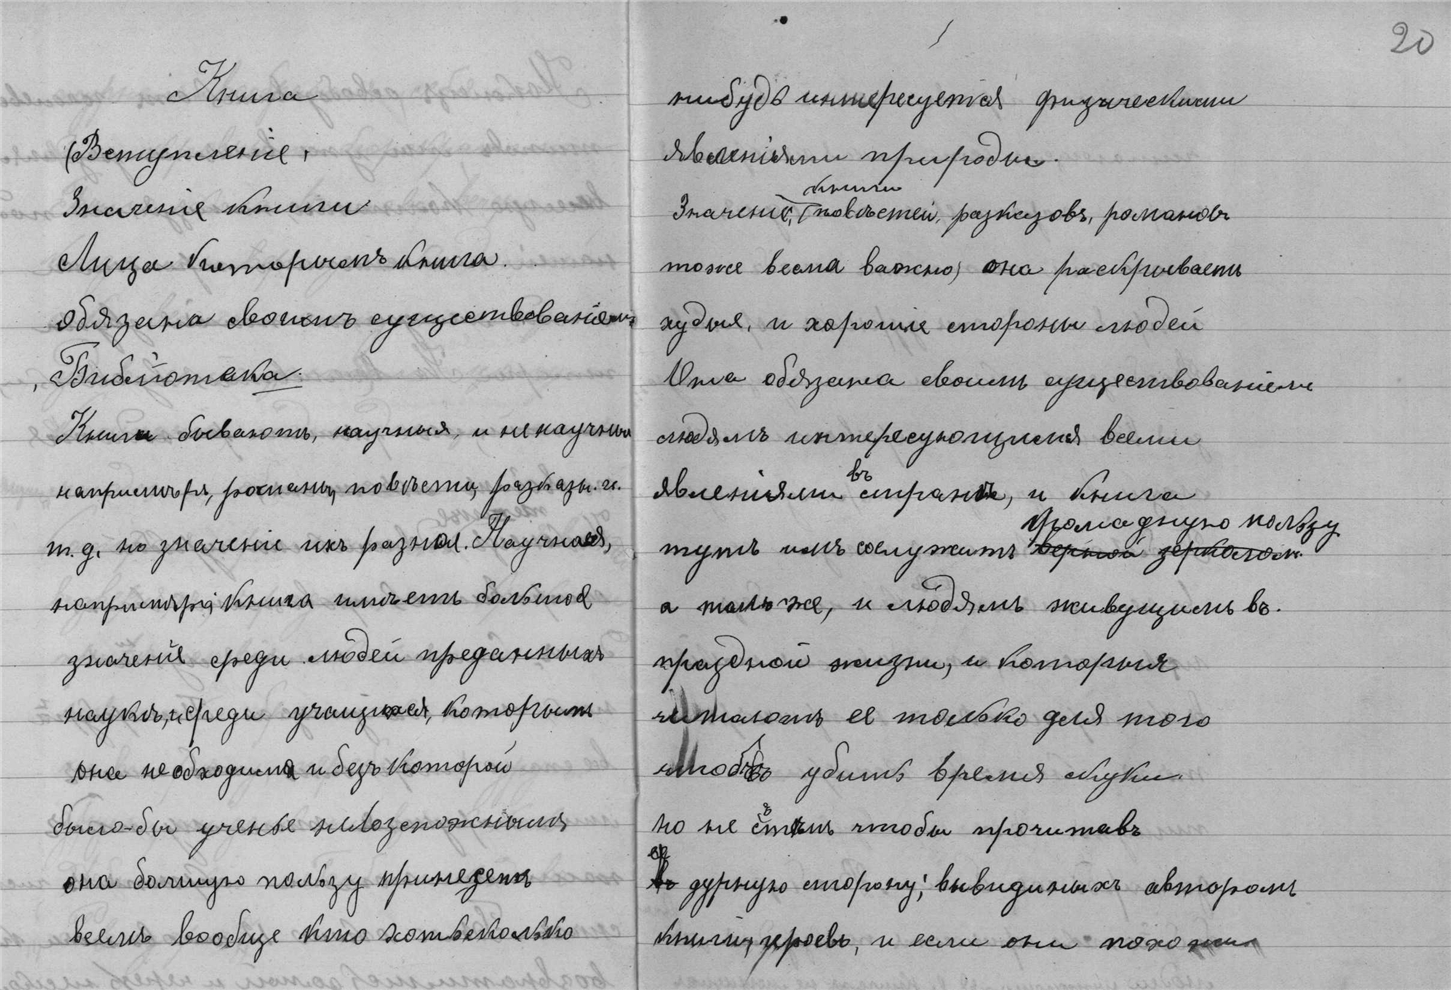 Книга
(Вступленіе,
Значеніе книги
Лица которымъ книга.
обязана своимъ существованіемъ
Библіотека.
Книги бывають, научныя, и не научныя
напримѣръ, романы, повѣсти, разказы. и.
т. д. но значеніе ихъ разное. Научная,
напримѣръ, книга имѣетъ большое
значеніе среди людей преданныхъ
наукѣ, и среди учащихся, которымъ
она необходима и безъ которой
было-бы ученье невозможнымъ
она болшую пользу принесетъ
всемъ вообще кто хотьсколько
20
нибудь интересуется физическими
явленіями природы.
книги
Значеніе, повѣстей, разказовъ, романовъ
тоже весма важно, она раскрываетъ
худыя, и хорошіе стороны людей
Она обязана своимъ существованіемъ
людямъ интересующимся всеми
явленіями въ странѣ, и книга
громадную пользу
тутъ имъ сослужитъ верной зеркалом.
а такъ же, и людямъ живущимъ въ.
праздной жизни, и которыя
читаютъ ее только для того
чтобъ убить время скуки
но не съ тѣмъ чтобы прочитавъ
ее
въ дурную сторону, вывидиныхъ авторомъ
книги, героевъ, и если они похожи